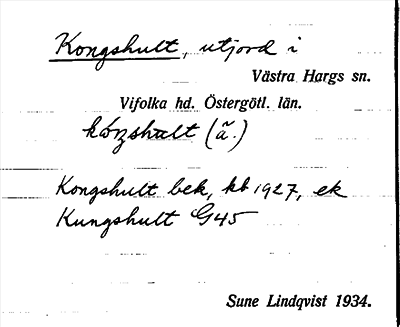 Kongshult, utjord i
Västra Hargs sn.
Vifolka hd. Östergötl. län.
kóngshult (ã.)
Kongshult bek, kb 1927, ek
Kungshult G45
Sune Lindqvist 1934.